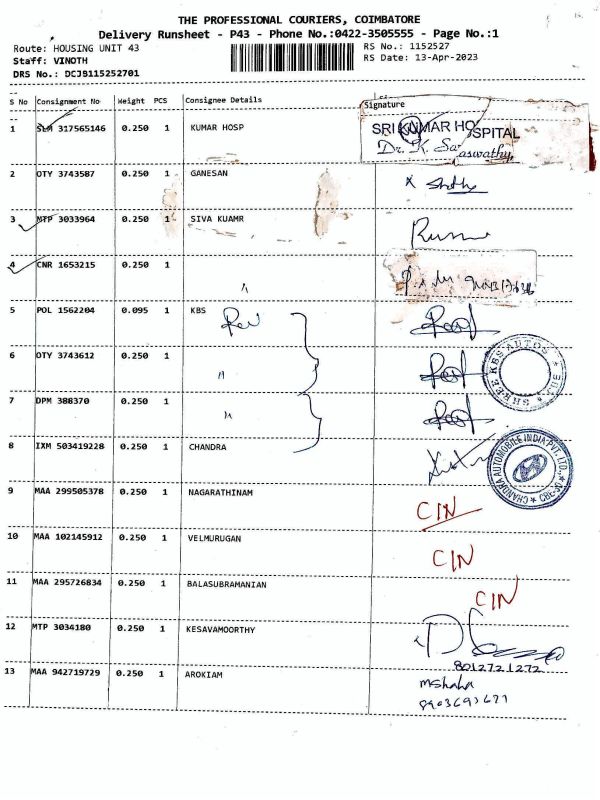 THE PROFESSIONAL COURIERS, COIMBATORE
Delivery Runsheet - P43 - Phone No.:0422-3505555 - Page No.:1
Route: HOUSING UNIT 43 RS No.: 1152527
Staff: VINOTH RS Date: 13-Apr-2023
DRS No.: DCJB115252701
S No Consignment No Weight PCS Consignee Details Signature
1 SLM 317565146 0.250 1 KUMAR HOSP SRI KUMAR HOSPITAL
Dr. K. Saraswathy
2 OTY 3743587 0.250 1 GANESAN
3 MTP 3033964 0.250 1 SIVA KUAMR
4 CNR 1653215 0.250 1
5 POL 1562204 0.095 1 KBS
6 OTY 3743612 0.250 1 SHREE KBS AUTOS
7 DPM 388370 0.250 1
8 IXM 503419228 0.250 1 CHANDRA CHANDRA AUTOMOBILE INDIA PVT. LTD.,
9 MAA 299505378 0.250 1 NAGARATHINAM CIN
10 MAA 102145912 0.250 1 VELMURUGAN CIN
11 MAA 295726834 0.250 1 BALASUBRAMANIAN CIN
12 MTP 3034180 0.250 1 KESAVAMOORTHY
8012721272
13 MAA 942719729 0.250 1 AROKIAM